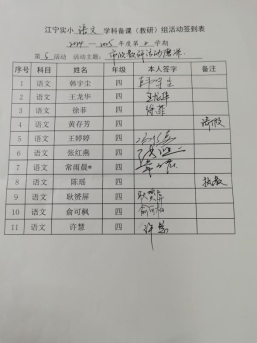 江宁实小 语文 学科备课（教研）组活动签到表
2014 — 2015 年度第 2 学期
第 5 活动 活动主题：
序号 科目 姓名 年级 本人签字 备注
1 语文 韩宇尘 四
2 语文 王龙华 四 王龙华
3 语文 徐菲 四 徐菲
4 语文 黄存芳 四 请假
5 语文 王婷婷 四
6 语文 张红燕 四
7 语文 常雨晨 四
8 语文 陈瑶 四
9 语文 耿赟屏 四 耿赟屏
10 语文 俞可枫 四 俞可枫
11 语文 许慧 四 许慧